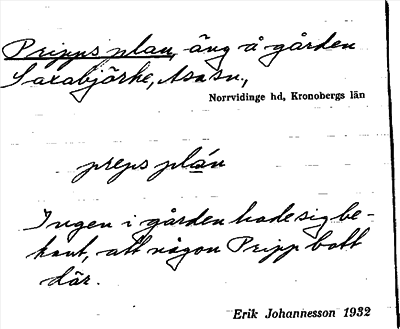 Pripps plan, äng å gården
Saxabjörke, Asa sn.,
Norrvidinge hd, Kronobergs län
preps plán
Ingen i gården hade sig be-
kant, att någon Pripp bott
där.
Erik Johannesson 1932